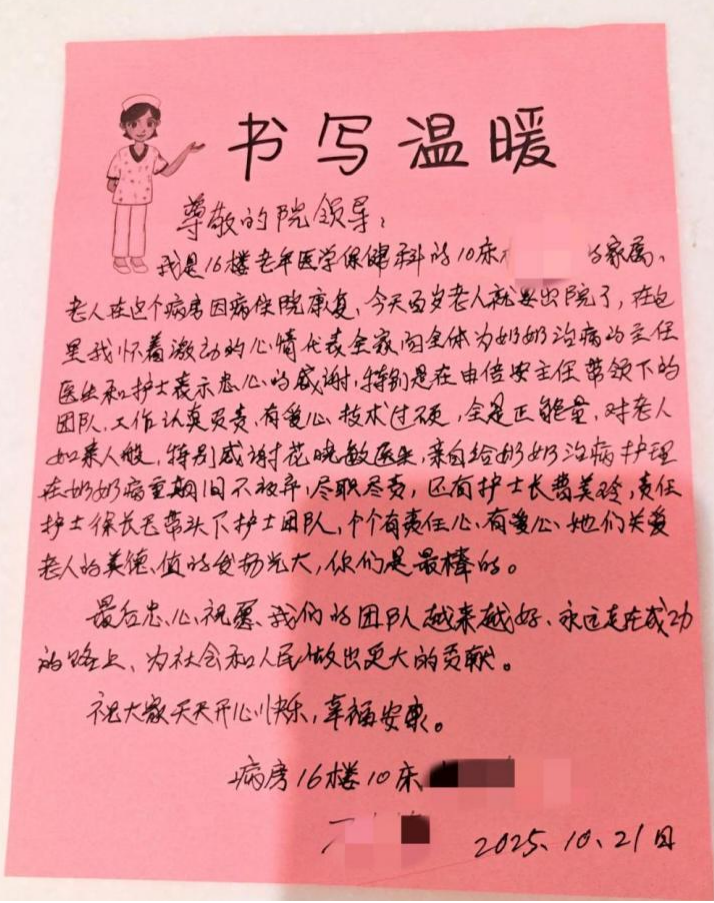 书写温暖
尊敬的院领导：
我是16楼老年医学保健科的10床 的家属、
老人在这个病房因病住院康复，今天百岁老人就要出院了，在这
里我怀着激动的心情代表全家向全体为奶奶治病的主任
医生和护士表示忠心的感谢，特别是在 主任带领下的
团队，工作认真负责，有爱心、技术过硬，全是正能量，对老人
如亲人般，特别感谢花晓敏医生，亲自给奶奶治病护理
在奶奶病重期间不放弃，尽职尽责，还有护士长费美玲，责任
护士 带头下护士团队，个个有责任心、有爱心、她们关爱
老人的美德、值的发扬光大，你们是最棒的。
最后忠心祝愿、我们的团队越来越好、永远走在成功
的路上、为社会和人民做出更大的贡献。
祝大家天天开心快乐，幸福安康。
病房16楼10床
2025、10、21日